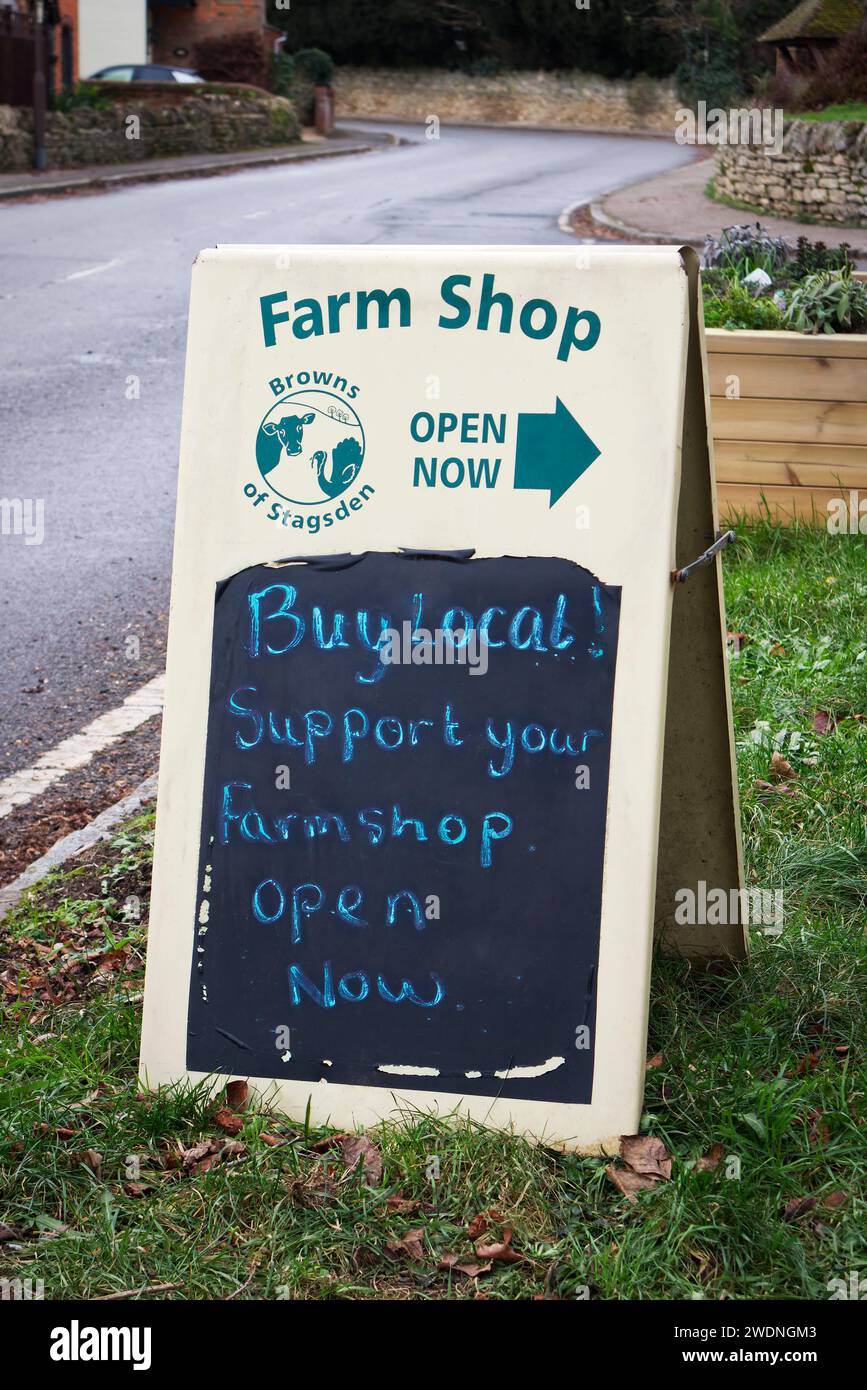 Farm Shop
Browns
of Stagsden
OPEN
NOW
Buy Local!
Support your
Farmshop.
Open
Now.
alamy
Image ID: 2WDNGM3
www.alamy.com